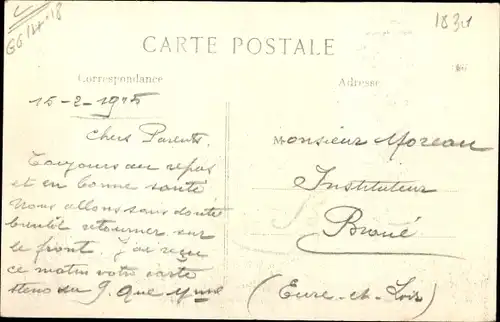 GG 14-18
1831
CARTE POSTALE
Correspondance
Adresse
15-2-1915
Chers Parents.
Toujours au repos
et en bonne santé
Nous allons sans doute
bientôt retourner sur
le front. J'ai reçu
ce matin votre carte
du 9. Que
Monsieur Moreau
Instituteur
Broué
(Eure-et-Loir)